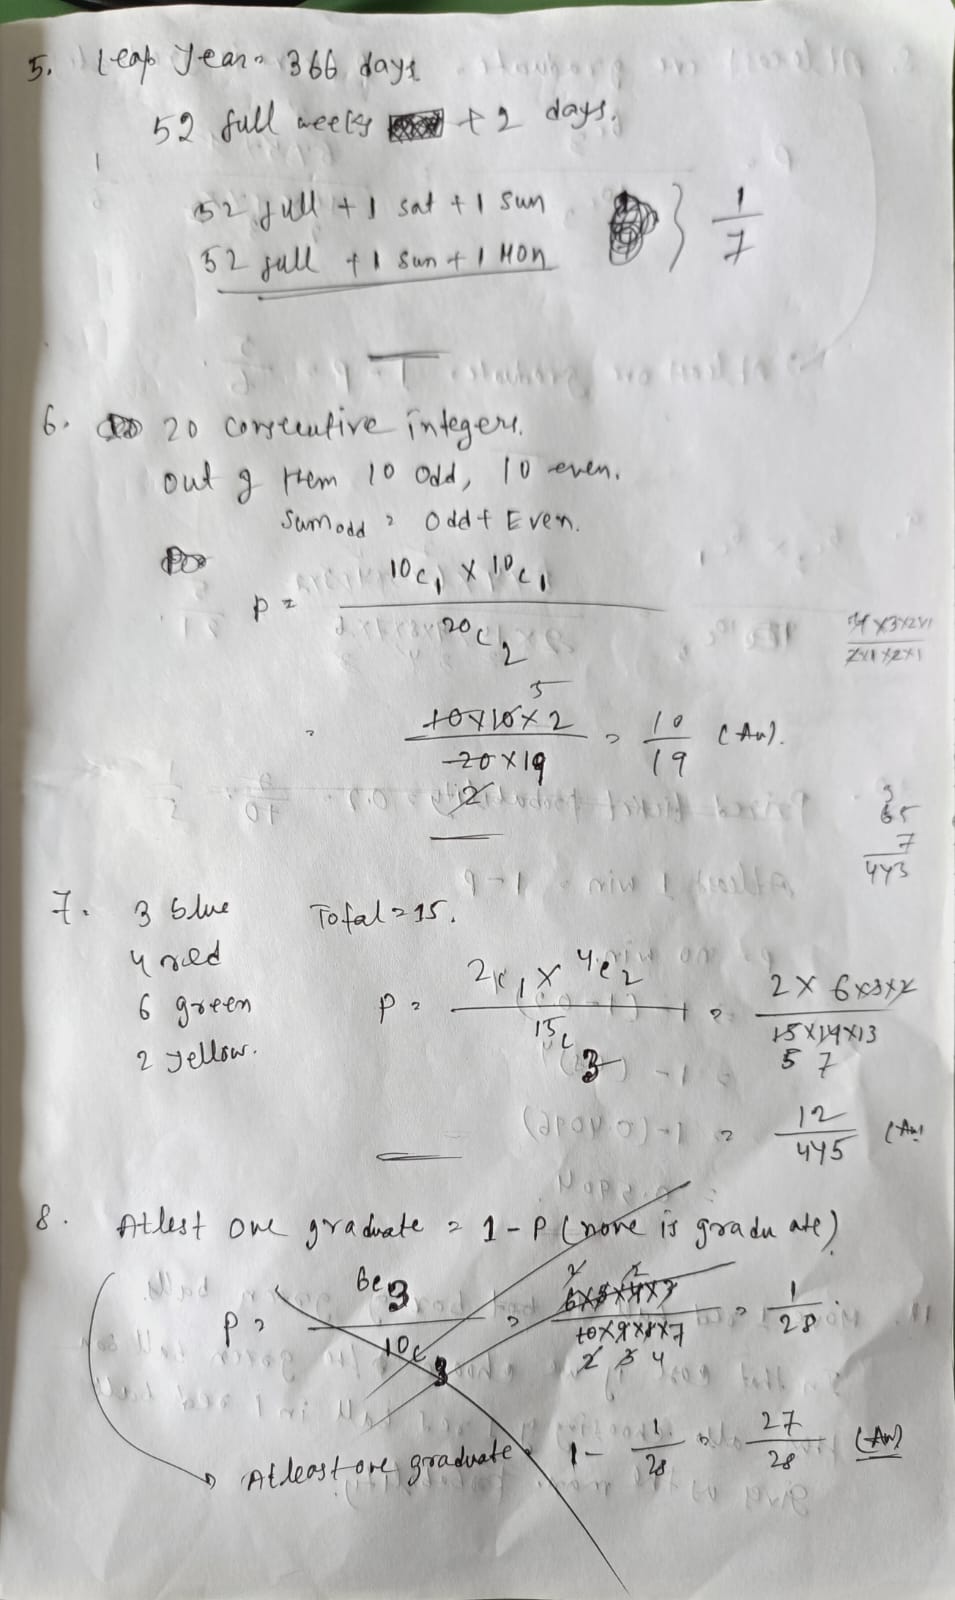 5. Leap Year = 366 days
52 full weeks + 2 days.
52 full + 1 sat + 1 sun } 1/7
52 full + 1 sun + 1 MON
6. 20 consecutive integers.
out of them 10 odd, 10 even.
Sum odd = odd + Even.
P = 10c1 × 10c1 / 20c2
4×3×2×1 / 2×1×2×1
= 10×10×2 / 20×19 = 10/19 (An).
5
2
3
65
7
443
7. 3 blue Total = 15.
4 red
6 green
2 yellow.
P = 2c1 × 4c2 / 15c3 = 2 × 6×3×2 / 15×14×13
5 7
= 12/445 (An)
8. Atlest one graduate = 1 - P (none is graduate)
P = 6c3 / 10c3 = 6×5×4×3 / 10×9×8×7 = 1/28
2 3 4
Atleast one graduate = 1 - 1/28 = 27/28 (An)